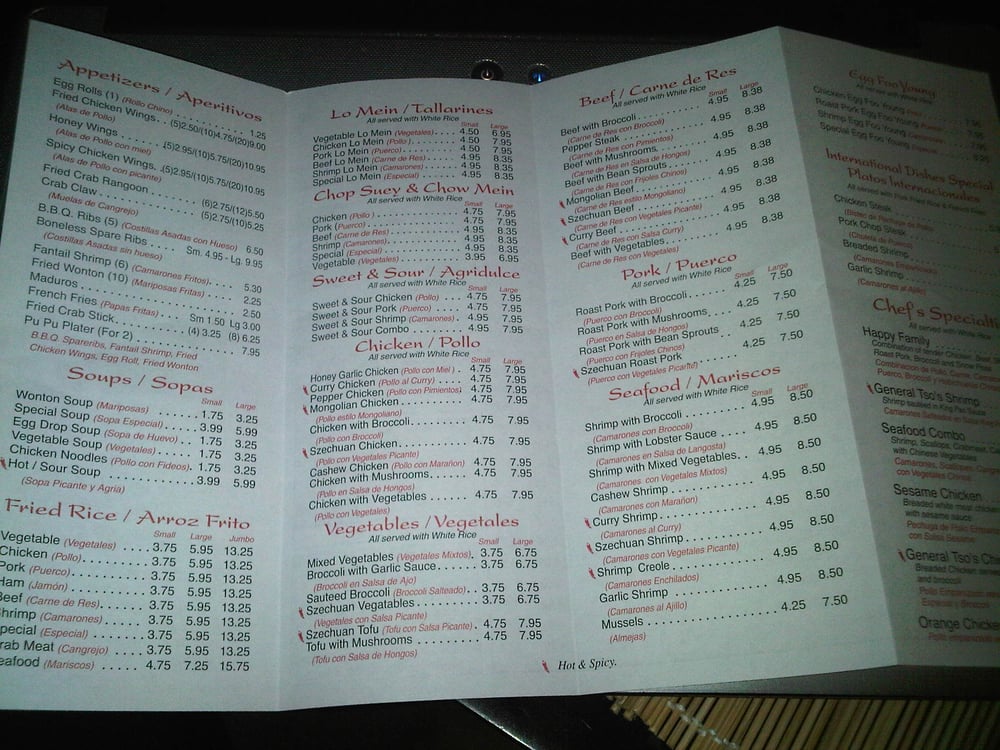 Appetizers / Aperitivos
Egg Rolls (1) (Rollo Chino) 1.25
Fried Chicken Wings. . (5)2.50/(10)4.75/(20)9.00
(Alas de Pollo)
Honey Wings . . (5)2.95/(10)5.75/(20)10.95
(Alas de Pollo con miel)
Spicy Chicken Wings. .(5)2.95/(10)5.75/(20)10.95
(Alas de Pollo con picante)
Fried Crab Rangoon . . . . . (6)2.75/(12)5.50
Crab Claw . . . . . (5)2.75/(10)5.25
(Muelas de Cangrejo)
B.B.Q. Ribs (5) (Costillas Asadas con Hueso) 6.50
Boneless Spare Ribs . . . . . Sm. 4.95 - Lg. 9.95
(Costillas Asadas sin hueso)
Fantail Shrimp (6) (Camarones Fritos). . . . 5.30
Fried Wonton (10) (Mariposas Fritas) . . . . 2.25
Maduros. . . . . 2.50
French Fries (Papas Fritas) . . . Sm 1.50 Lg 3.00
Fried Crab Stick. . . . . (4) 3.25 (8) 6.25
Pu Pu Plater (For 2) . . . . . 7.95
B.B.Q. Spareribs, Fantail Shrimp, Fried
Chicken Wings, Egg Roll, Fried Wonton
Soups / Sopas
Small Large
Wonton Soup (Mariposas) . . . . . . 1.75 3.25
Special Soup (Sopa Especial) . . . . 3.99 5.99
Egg Drop Soup (Sopa de Huevo) . . 1.75 3.25
Vegetable Soup (Vegetales) . . . . . 1.75 3.25
Chicken Noodles (Pollo con Fideos). 1.75 3.25
Hot / Sour Soup . . . . . 3.99 5.99
(Sopa Picante y Agria)
Fried Rice / Arroz Frito
Small Large Jumbo
Vegetable (Vegetales) . . . . 3.75 5.95 13.25
Chicken (Pollo). . . . . 3.75 5.95 13.25
Pork (Puerco). . . . . 3.75 5.95 13.25
Ham (Jamón) . . . . . 3.75 5.95 13.25
Beef (Carne de Res). . . . . 3.75 5.95 13.25
hrimp (Camarones) . . . . . 3.75 5.95 13.25
pecial (Especial) . . . . . 3.75 5.95 13.25
rab Meat (Cangrejo) . . . . 3.75 5.95 13.25
eafood (Mariscos) . . . . . 4.75 7.25 15.75
Lo Mein / Tallarines
All served with White Rice
Small Large
Vegetable Lo Mein (Vegetales) . . . . 4.50 6.95
Chicken Lo Mein (Pollo ) . . . . . 4.50 7.95
Pork Lo Mein (Puerco) . . . . . 4.50 7.95
Beef Lo Mein (Carne de Res) . . . . . 4.95 8.35
Shrimp Lo Mein (Camarones) . . . . 4.95 8.35
Special Lo Mein (Especial) . . . . . 4.95 8.35
Chop Suey & Chow Mein
All served with White Rice
Small Large
Chicken (Pollo ) . . . . . 4.75 7.95
Pork (Puerco). . . . . 4.75 7.95
Beef (Carne de Res) . . . . . 4.95 8.35
Shrimp (Camarones). . . . . 4.95 8.35
Special (Especial) . . . . . 4.95 8.35
Vegetable (Vegetales) . . . . . 3.95 6.95
Sweet & Sour / Agridulce
All served with White Rice
Small Large
Sweet & Sour Chicken (Pollo) . . . . . 4.75 7.95
Sweet & Sour Pork (Puerco) . . . . . 4.75 7.95
Sweet & Sour Shrimp (Camarones) . 4.95 7.95
Sweet & Sour Combo . . . . . 4.95 7.95
Chicken / Pollo
All served with White Rice
Small Large
Honey Garlic Chicken (Pollo con Miel ) . 4.75 7.95
Curry Chicken (Pollo al Curry) . . . . 4.75 7.95
Pepper Chicken (Pollo con Pimientos) 4.75 7.95
Mongolian Chicken . . . . . 4.75 7.95
(Pollo estilo Mongoliano)
Chicken with Broccoli. . . . . 4.75 7.95
(Pollo con Broccoli)
Szechuan Chicken. . . . . 4.75 7.95
(Pollo con Vegetales Picante)
Cashew Chicken (Pollo con Marañon) . 4.75 7.95
Chicken with Mushrooms. . . . . 4.75 7.95
(Pollo en Salsa de Hongos)
Chicken with Vegetables . . . . . 4.75 7.95
(Pollo con Vegetales)
Vegetables / Vegetales
All served with White Rice
Small Large
Mixed Vegetables (Vegetales Mixtos). 3.75 6.75
Broccoli with Garlic Sauce. . . . . 3.75 6.75
(Broccoli en Salsa de Ajo)
Sauteed Broccoli (Broccoli Salteado). . 3.75 6.75
Szechuan Vegatables. . . . . 3.75 6.75
(Vegetales con Salsa Picante)
Szechuan Tofu (Tofu con Salsa Picante) . 4.75 7.95
Tofu with Mushrooms . . . . . 4.75 7.95
(Tofu con Salsa de Hongos)
Beef / Carne de Res
All served with White Rice
Small Large
Beef with Broccoli . . . . . 4.95 8.38
(Carne de Res con Broccoli)
Pepper Steak . . . . . 4.95 8.38
(Carne de Res con Pimientos)
Beef with Mushrooms . . . . . 4.95 8.38
(Carne de Res en Salsa de Hongos)
Beef with Bean Sprouts . . . . . 4.95 8.38
(Carne de Res con Frijoles Chinos)
Mongolian Beef . . . . . 4.95 8.38
(Carne de Res estilo Mongoliano)
Szechuan Beef . . . . . 4.95 8.38
(Carne de Res con Vegetales Picante)
Curry Beef . . . . . 4.95 8.38
(Carne de Res con Salsa Curry)
Beef with Vegetables . . . . . 4.95 8.38
(Carne de Res con Vegetales)
Pork / Puerco
All served with White Rice
Small Large
Roast Pork with Broccoli. . . . . 4.25 7.50
(Puerco con Broccoli)
Roast Pork with Mushrooms. . . . . 4.25 7.50
(Puerco en Salsa de Hongos)
Roast Pork with Bean Sprouts . . . 4.25 7.50
(Puerco con Frijoles Chinos)
Szechuan Roast Pork . . . . . 4.25 7.50
(Puerco con Vegetales Picante)
Seafood / Mariscos
All served with White Rice
Small Large
Shrimp with Broccoli . . . . . 4.95 8.50
(Camarones con Broccoli)
Shrimp with Lobster Sauce . . . . 4.95 8.50
(Camarones en Salsa de Langosta)
Shrimp with Mixed Vegetables. . . 4.95 8.50
(Camarones con Vegetales Mixtos)
Cashew Shrimp . . . . . 4.95 8.50
(Camarones con Marañon)
Curry Shrimp. . . . . 4.95 8.50
(Camarones al Curry)
Szechuan Shrimp. . . . . 4.95 8.50
(Camarones con Vegetales Picante)
Shrimp Creole . . . . . 4.95 8.50
(Camarones Enchilados)
Garlic Shrimp . . . . . 4.95 8.50
(Camarones al Ajillo)
Mussels . . . . . 4.25 7.50
(Almejas)
Hot & Spicy.
Egg Foo Young
All served with White Rice
Chicken Egg Foo Young
Roast Pork Egg Foo Young
Shrimp Egg Foo Young
Special Egg Foo Young
International Dishes Special
Platos Internacionales
All served with Pork Fried Rice &
Chicken Steak
(Bistec de Pollo)
Pork Chop Steak
(Chuleta de Puerco)
Breaded Shrimp
(Camarones Empanizados)
Garlic Shrimp
(Camarones al Ajillo)
Chef's Specialti
All served with White
Happy Family
Combination of tender Chicken, Beef,
Roast Pork, Broccoli and Snow Peas
General Tso's Shrimp
Shrimp sauteed in King Pao Sauce
Seafood Combo
Shrimp, Scallops,
with Chinese Vegetables
Camarones,
con Vegetales Chinos
Sesame Chicken
Breaded white meat chicken
with sesame sauce
con Salsa Sesame
General Tso's Chi
Breaded Chicken
and broccoli
Especial y Broccoli
Orange Chicke